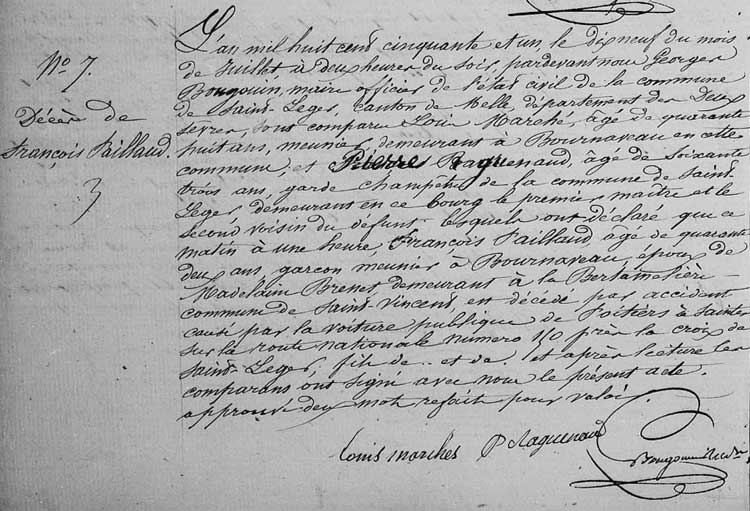 N° 7.
Décès de
François Paillaud.
L'an mil huit cent cinquante et un, le dix neuf du mois
de Juillet, à deux heures du soir, pardevant nous Georges
Bougouin, maire officier de l'état civil de la commune
de Saint-Leger, canton de Melle, département des Deux
Sevres, sont comparu Louis Marché, âgé de quarante
huit ans, meunier, demeurant à Bournaveau en cette
commune, et Pierre Raguenaud, âgé de soixante
trois ans, garde champêtre de la commune de Saint-
Leger, demeurant en ce bourg le premier maître et le
second voisin du défunt lesquels ont déclaré que ce
matin à une heure, François Paillaud âgé de quarante
deux ans, garçon meunier à Bournaveau, époux de
Madelaine Brenet demeurant à la Bertamelière
commune de Saint-Vincent est décédé par accident
causé par la voiture publique de Poitiers à Saintes
sur la route nationale numero 150 près la croix de
Saint-Leger, fils de .. et de .. et après lecture les
comparans ont signé avec nous le présent acte.
approuvé deux mots refait pour valoir.
Louis marches P Raguenaud
Bougouin